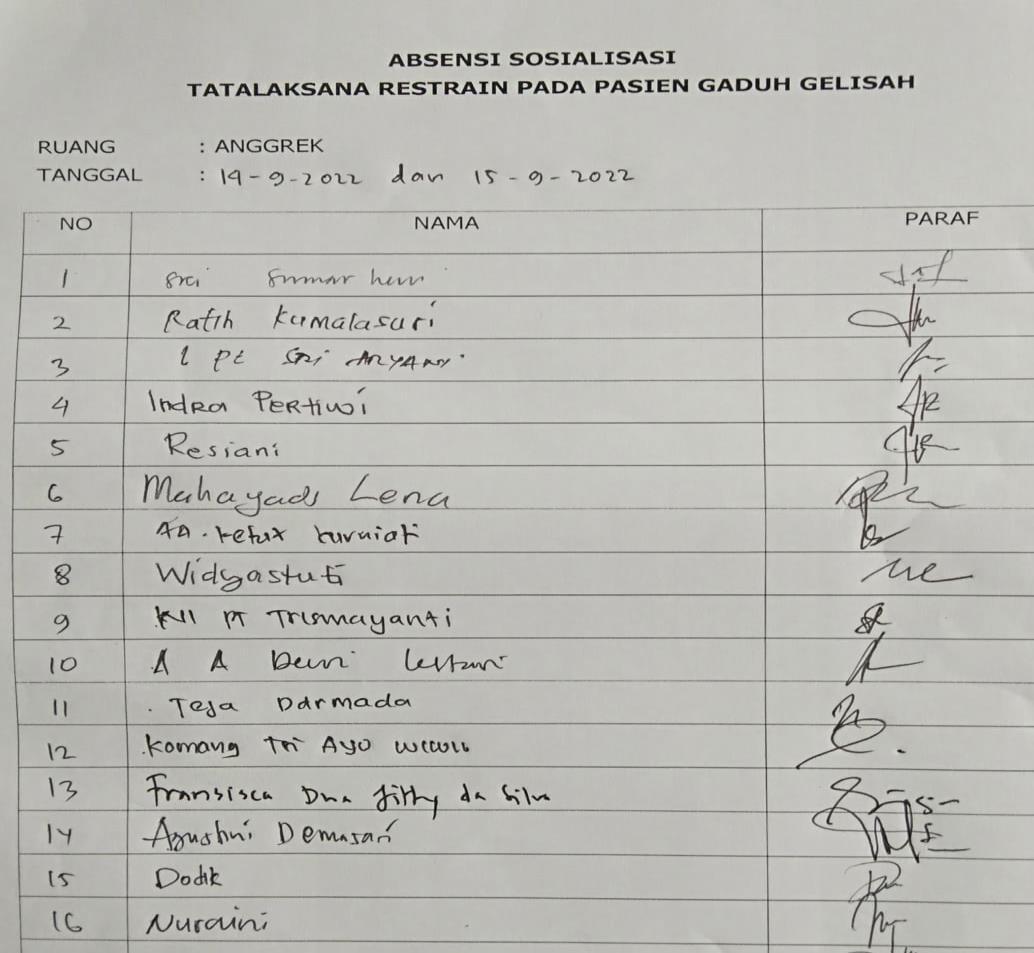 ABSENSI SOSIALISASI
TATALAKSANA RESTRAIN PADA PASIEN GADUH GELISAH
RUANG : ANGGREK
TANGGAL : 14-9-2022 dan 15-9-2022
NO NAMA PARAF
1 Sri
2 Ratih Kumalasari
3 I Pt Sri ARYANI
4 Indra PERtiwi
5 Resiani
6 Mahayads Lena
7 AA. Ketut kurniati
8 Widyastuti
9 Ni PT Trismayanti
10 A A Dewi Lestari
11 Teja Darmada
12 Komang Tri Ayo
13 Fransisca Dna da Silva
14 Agustini Demasari
15 Dodik
16 Nuraini